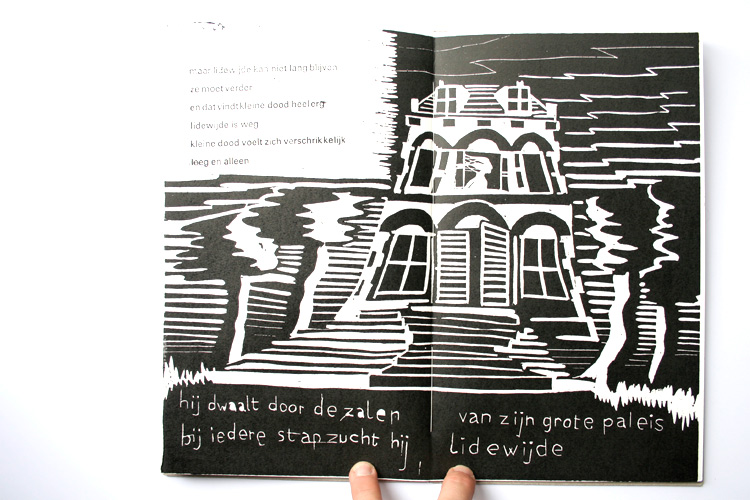 maar lidewijde kan niet lang blijven
ze moet verder
en dat vindt kleine dood heel erg
lidewijde is weg
kleine dood voelt zich verschrikkelijk
leeg en alleen
hij dwaalt door de zalen van zijn grote paleis
bij iedere stap zucht hij lidewijde